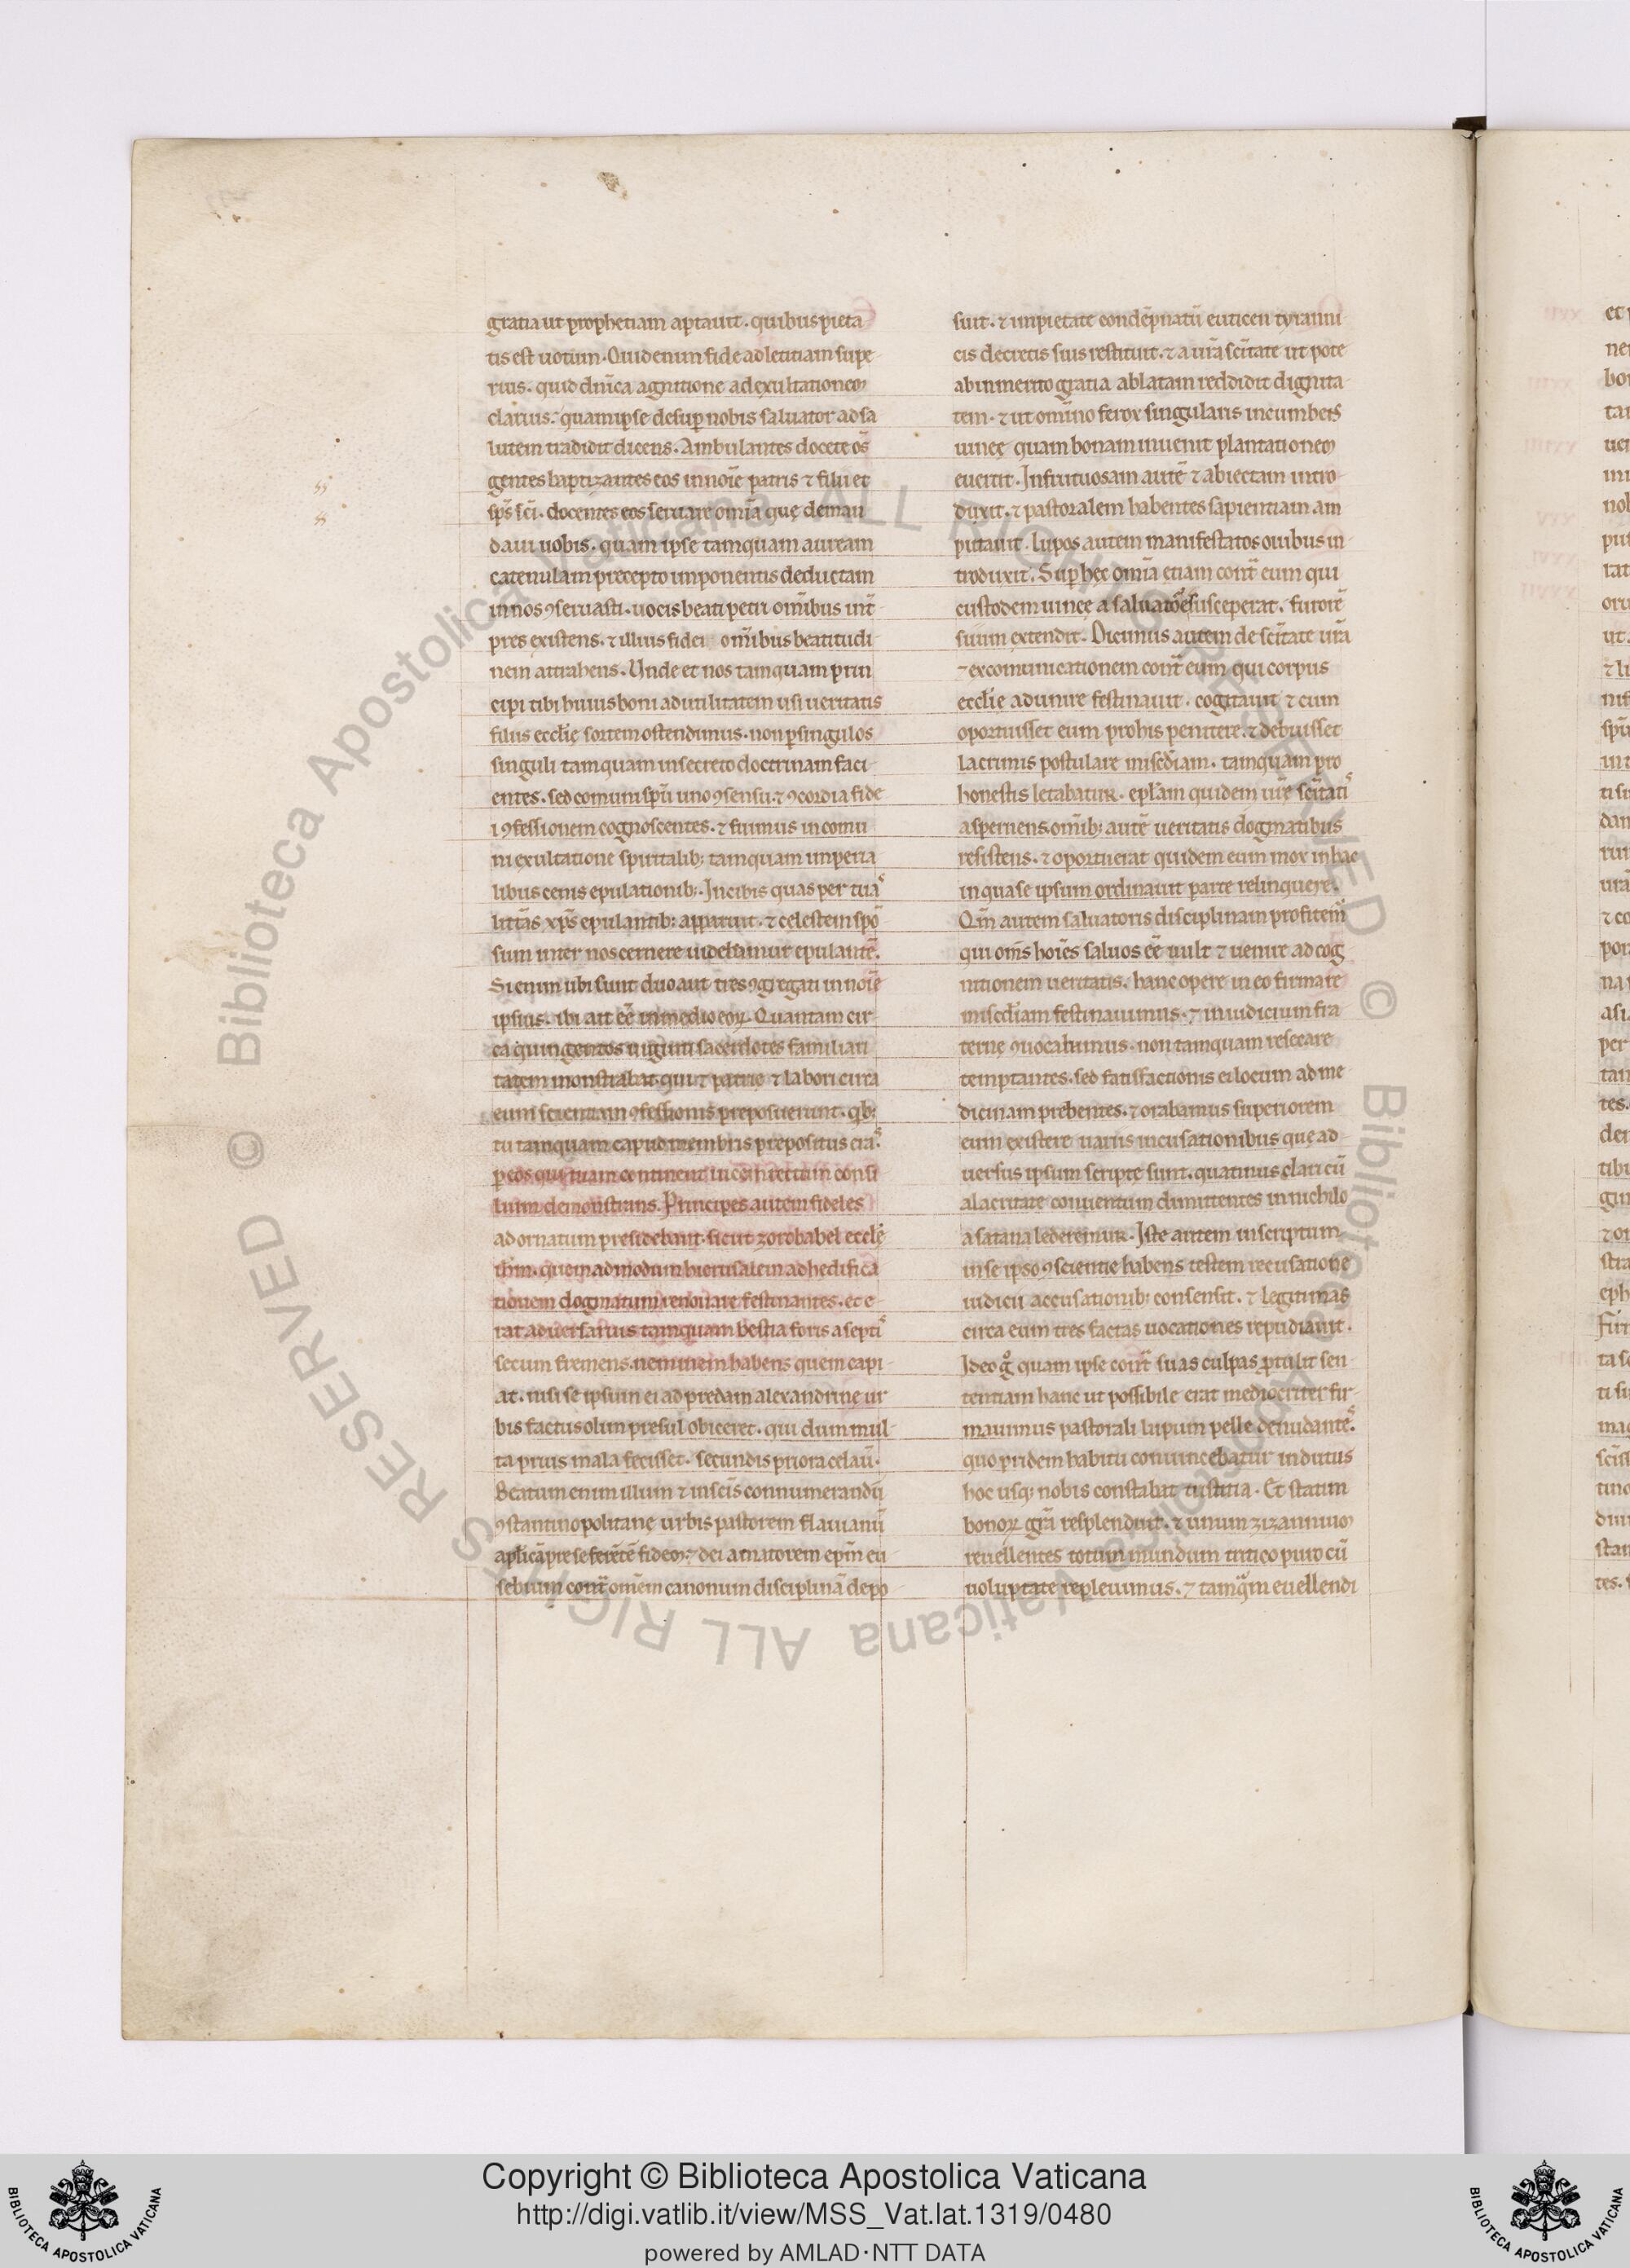 gratia ut prophetiam aptauit. quibus pieta
tis est uotum. Quid enim fide ad letitiam supe
rius. quid dnica agnitione ad exultationem
clarius. quam ipse desup nobis saluator ad sa
lutem tradidit dicens. Ambulantes docete os
gentes baptizantes eos in noie patris ⁊ filii et
sps sci. docentes eos seruare omia que deman
daui uobis. quam ipse tamquam auream
catenulam precepto imponentis deductam
in nos ꝯseruasti. uocis beati petri omibus int
pres existens. ⁊ illius fidei omibus beatitudi
nem attrahens. Unde et nos tamquam prin
cipi tibi huius boni ad utilitatem usi ueritatis
filiis ecclie sortem ostendimus. non ꝑ singulos
singuli tamquam in secreto doctrinam faci
entes. sed comuni spu uno ꝯsensu. ⁊ ꝯcordia fide
i ꝯfessionem cognoscentes. ⁊ fuimus in comu
ni exultatione spiritalib; tamquam imperia
libus cenis epulationib;. In cibis quas per tuas
littas xps epulantib; apparuit. ⁊ celestem spo
sum inter nos cernere uidebamur epulante.
Si enim ubi sunt duo aut tres ꝯgregati in noie
ipsius. ibi ait ee in medio eoꝝ. Quantam cir
ca quingentos uiginti sacerdotes familiari
tatem monstrabat. qui ⁊ patrie ⁊ labori cura
eum scientiam ꝯfessionis preposuerunt. qb;
tu tamquam capud membris prepositus eras.
ꝑ eos qui tuam continent uicem rectum consi
lium demonstrans. Principes autem fideles
ad ornatum presidebant. sicut zorobabel eccle
ihm. quemadmodum hierusalem ad hedifica
tionem dogmatum renouare festinantes. et e
rat aduersarius tamquam bestia foris a septis
secum fremens. neminem habens quem capi
at. nisi se ipsum ei ad predam alexandrine ur
bis factus olim presul obieceret. qui dum mul
ta prius mala fecisset. secundis priora celau.
Beatum enim illum ⁊ in scis connumerandu
ꝯstantinopolitane urbis pastorem flauianu
aplica pre se ferete fidem. ⁊ dei amatorem epm eu
sebium cont omem canonum disciplina depo
suit. ⁊ impietate condepnatu euticen tyranni
cis decretis suis restituit. ⁊ a ura scitate ut pote
ab inmerito gratia ablatam reddidit dignita
tem. ⁊ ut omino ferox singularis incumbens
uinee quam bonam inuenit plantationem
euertit. Infrutuosam aute ⁊ abiectam intro
duxit. ⁊ pastoralem habentes sapientiam am
putauit. lupos autem manifestatos ouibus in
troduxit. Sup hec omia etiam cont eum qui
custodem uinee a saluatore susceperat. furore
suum extendit. Dicimus autem de scitate ura
⁊ excomunicationem cont eum qui corpus
ecclie adunire festinauit. cogitauit ⁊ cum
oportuisset eum probis penitere. ⁊ debuisset
lacrimis postulare misediam. tamquam pro
honestis letabatur. eplam quidem ure scitatis
aspernens. omib; aute ueritatis dogmatibus
resistens. ⁊ oportuerat quidem eum mox in hac
in qua se ipsum ordinauit parte relinquere.
Qm autem saluatoris disciplinam profitemur
qui oms hoies saluos ee uult ⁊ uenire ad cog
nitionem ueritatis. hanc opere in eo firmare
misediam festinauimus. ⁊ in iudicium fra
terne ꝯuocabimus. non tamquam resecare
temptantes. sed satisfactionis ei locum ad me
dicinam prebentes. ⁊ orabamus superiorem
eum existere uariis incusationibus que ad
uersus ipsum scripte sunt. quatinus clari cu
alacritate conuentum dimittentes in nichilo
a satana lederemur. Iste autem inscriptum
in se ipso ꝯscientie habens testem recusatione
iudicii accusationib; consensit. ⁊ legitimas
circa eum tres factas uocationes repudiauit.
Ideo g quam ipse cont suas culpas ꝓtulit sen
tentiam hanc ut possibile erat mediocriter fir
mauimus pastorali lupum pelle denudantes.
quo pridem habitu conuincebatur indutus
hoc usq; nobis constabat tristitia. Et statim
bonoꝝ gra resplenduit. ⁊ unum zizannium
reuellentes totum mundum tritico puro cu
uoluptate repleuimus. ⁊ tamqm euellendi
© Biblioteca Apostolica Vaticana ALL RIGHTS RESERVED © Biblioteca Apostolica Vaticana ALL RIGHTS RESERVED
Copyright © Biblioteca Apostolica Vaticana
http://digi.vatlib.it/view/MSS_Vat.lat.1319/0480
powered by AMLAD·NTT DATA
BIBLIOTECA APOSTOLICA VATICANA
BIBLIOTECA APOSTOLICA VATICANA